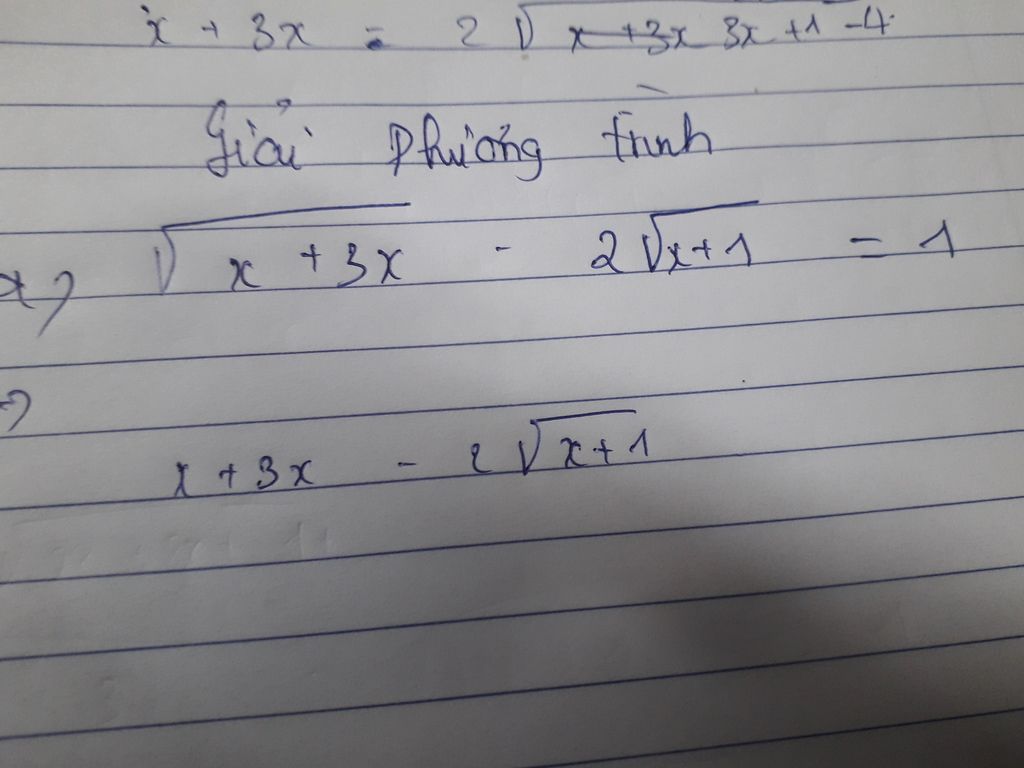 x + 3x = 2√x+3x 3x+1-4
Giải Phương trình
√x+3x - 2√x+1 = 1
x+3x - 2√x+1